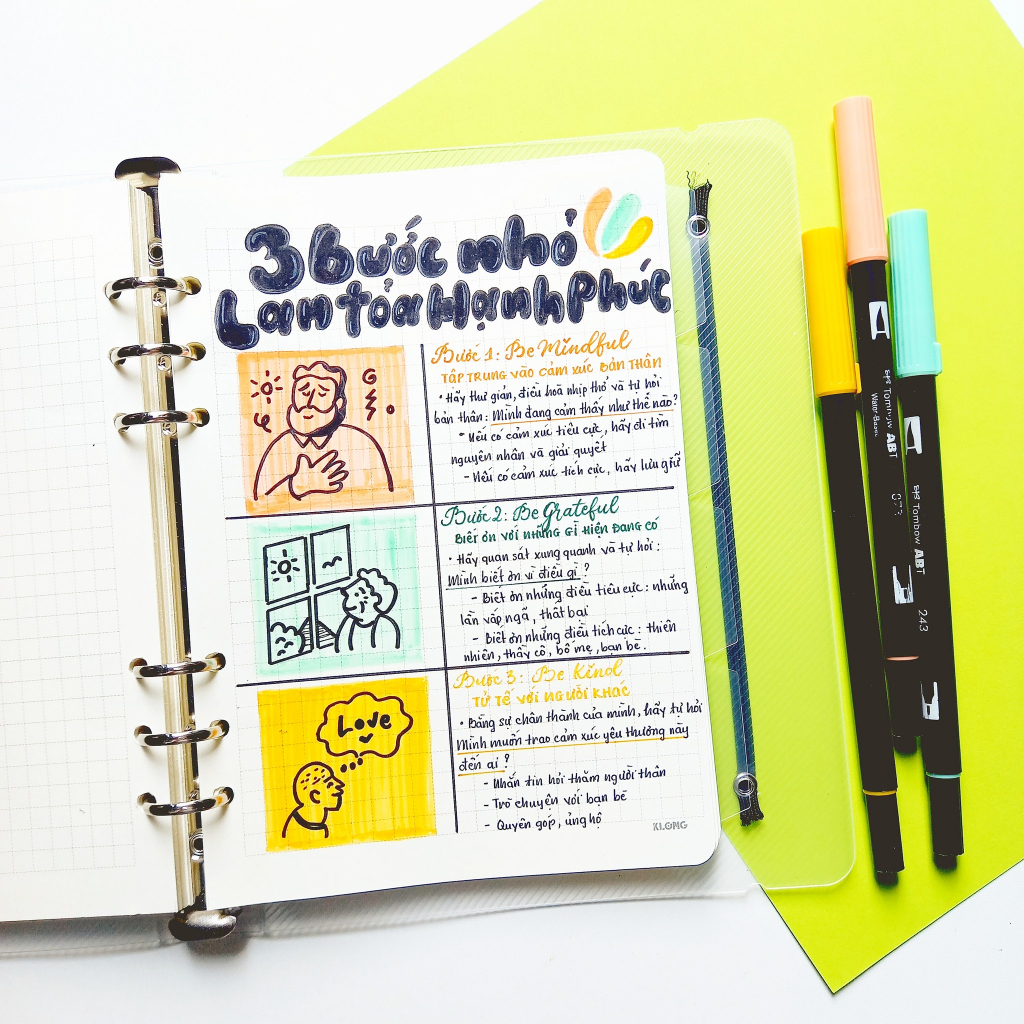 3 bước nhỏ
Lan tỏa Hạnh Phúc
Bước 1: Be Mindful
TẬP TRUNG VÀO CẢM XÚC BẢN THÂN
• Hãy thư giãn, điều hoà nhịp thở và tự hỏi
bản thân: Mình đang cảm thấy như thế nào?
• Nếu có cảm xúc tiêu cực, hãy đi tìm
nguyên nhân và giải quyết
- Nếu có cảm xúc tích cực, hãy lưu giữ
Bước 2: Be Grateful
BIẾT ƠN VỚI NHỮNG GÌ HIỆN ĐANG CÓ
• Hãy quan sát xung quanh và tự hỏi:
Mình biết ơn vì điều gì?
- Biết ơn những điều tiêu cực: những
lần vấp ngã, thất bại
- Biết ơn những điều tích cực: thiên
nhiên, thầy cô, bố mẹ, bạn bè.
Love
Bước 3: Be Kind
TỬ TẾ VỚI NGƯỜI KHÁC
• Bằng sự chân thành của mình, hãy tự hỏi
Mình muốn trao cảm xúc yêu thương này
đến ai?
- Nhắn tin hỏi thăm người thân
- Trò chuyện với bạn bè
- Quyên góp, ủng hộ
KLONG
Tombow ABT
Water-Based
Tombow ABT
243